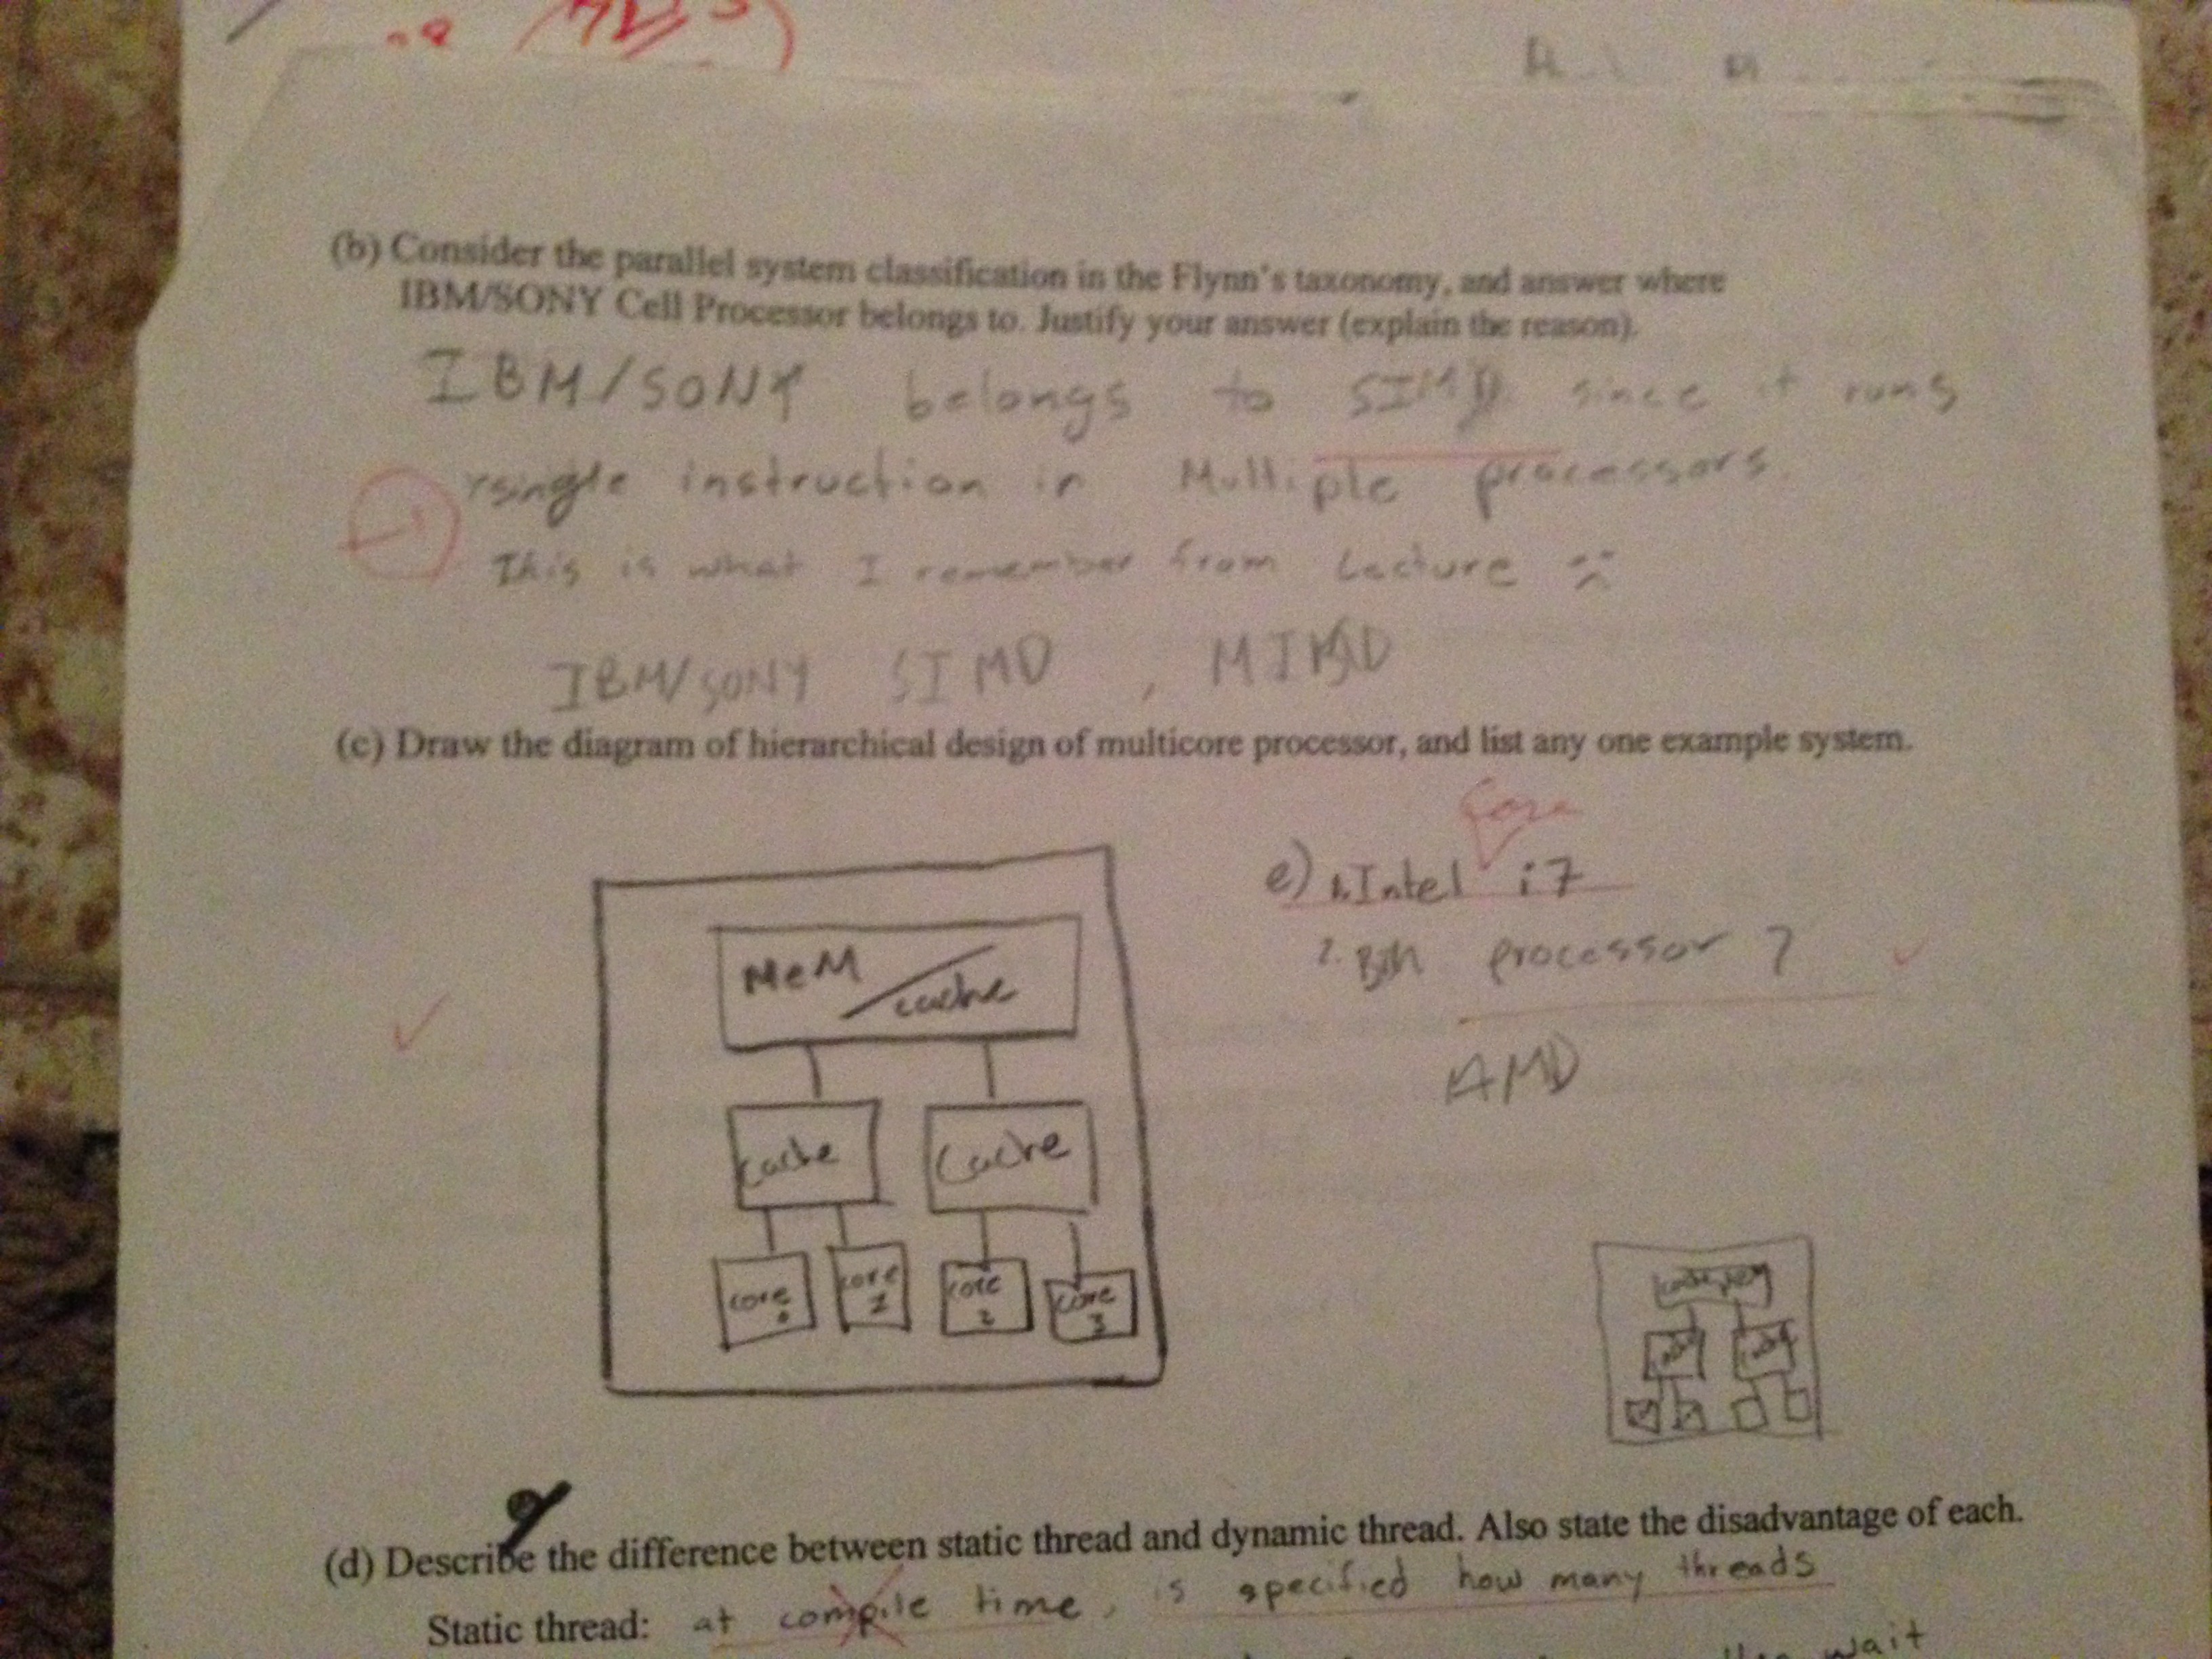 (b) Consider the parallel system classification in the Flynn's taxonomy, and answer where
IBM/SONY Cell Processor belongs to. Justify your answer (explain the reason).
IBM/SONY belongs to SIMD since it runs
single instruction in Multiple processors.
-1
This is what I remember from Lecture
IBM/SONY SIMD , MIMD
(c) Draw the diagram of hierarchical design of multicore processor, and list any one example system.
Core
e) 1. Intel i7
2. IBM processor ?
AMD
MeM / cache
cache
cache
core
core 1
core 2
core 3
(d) Describe the difference between static thread and dynamic thread. Also state the disadvantage of each.
Static thread: at compile time, is specified how many threads
wait